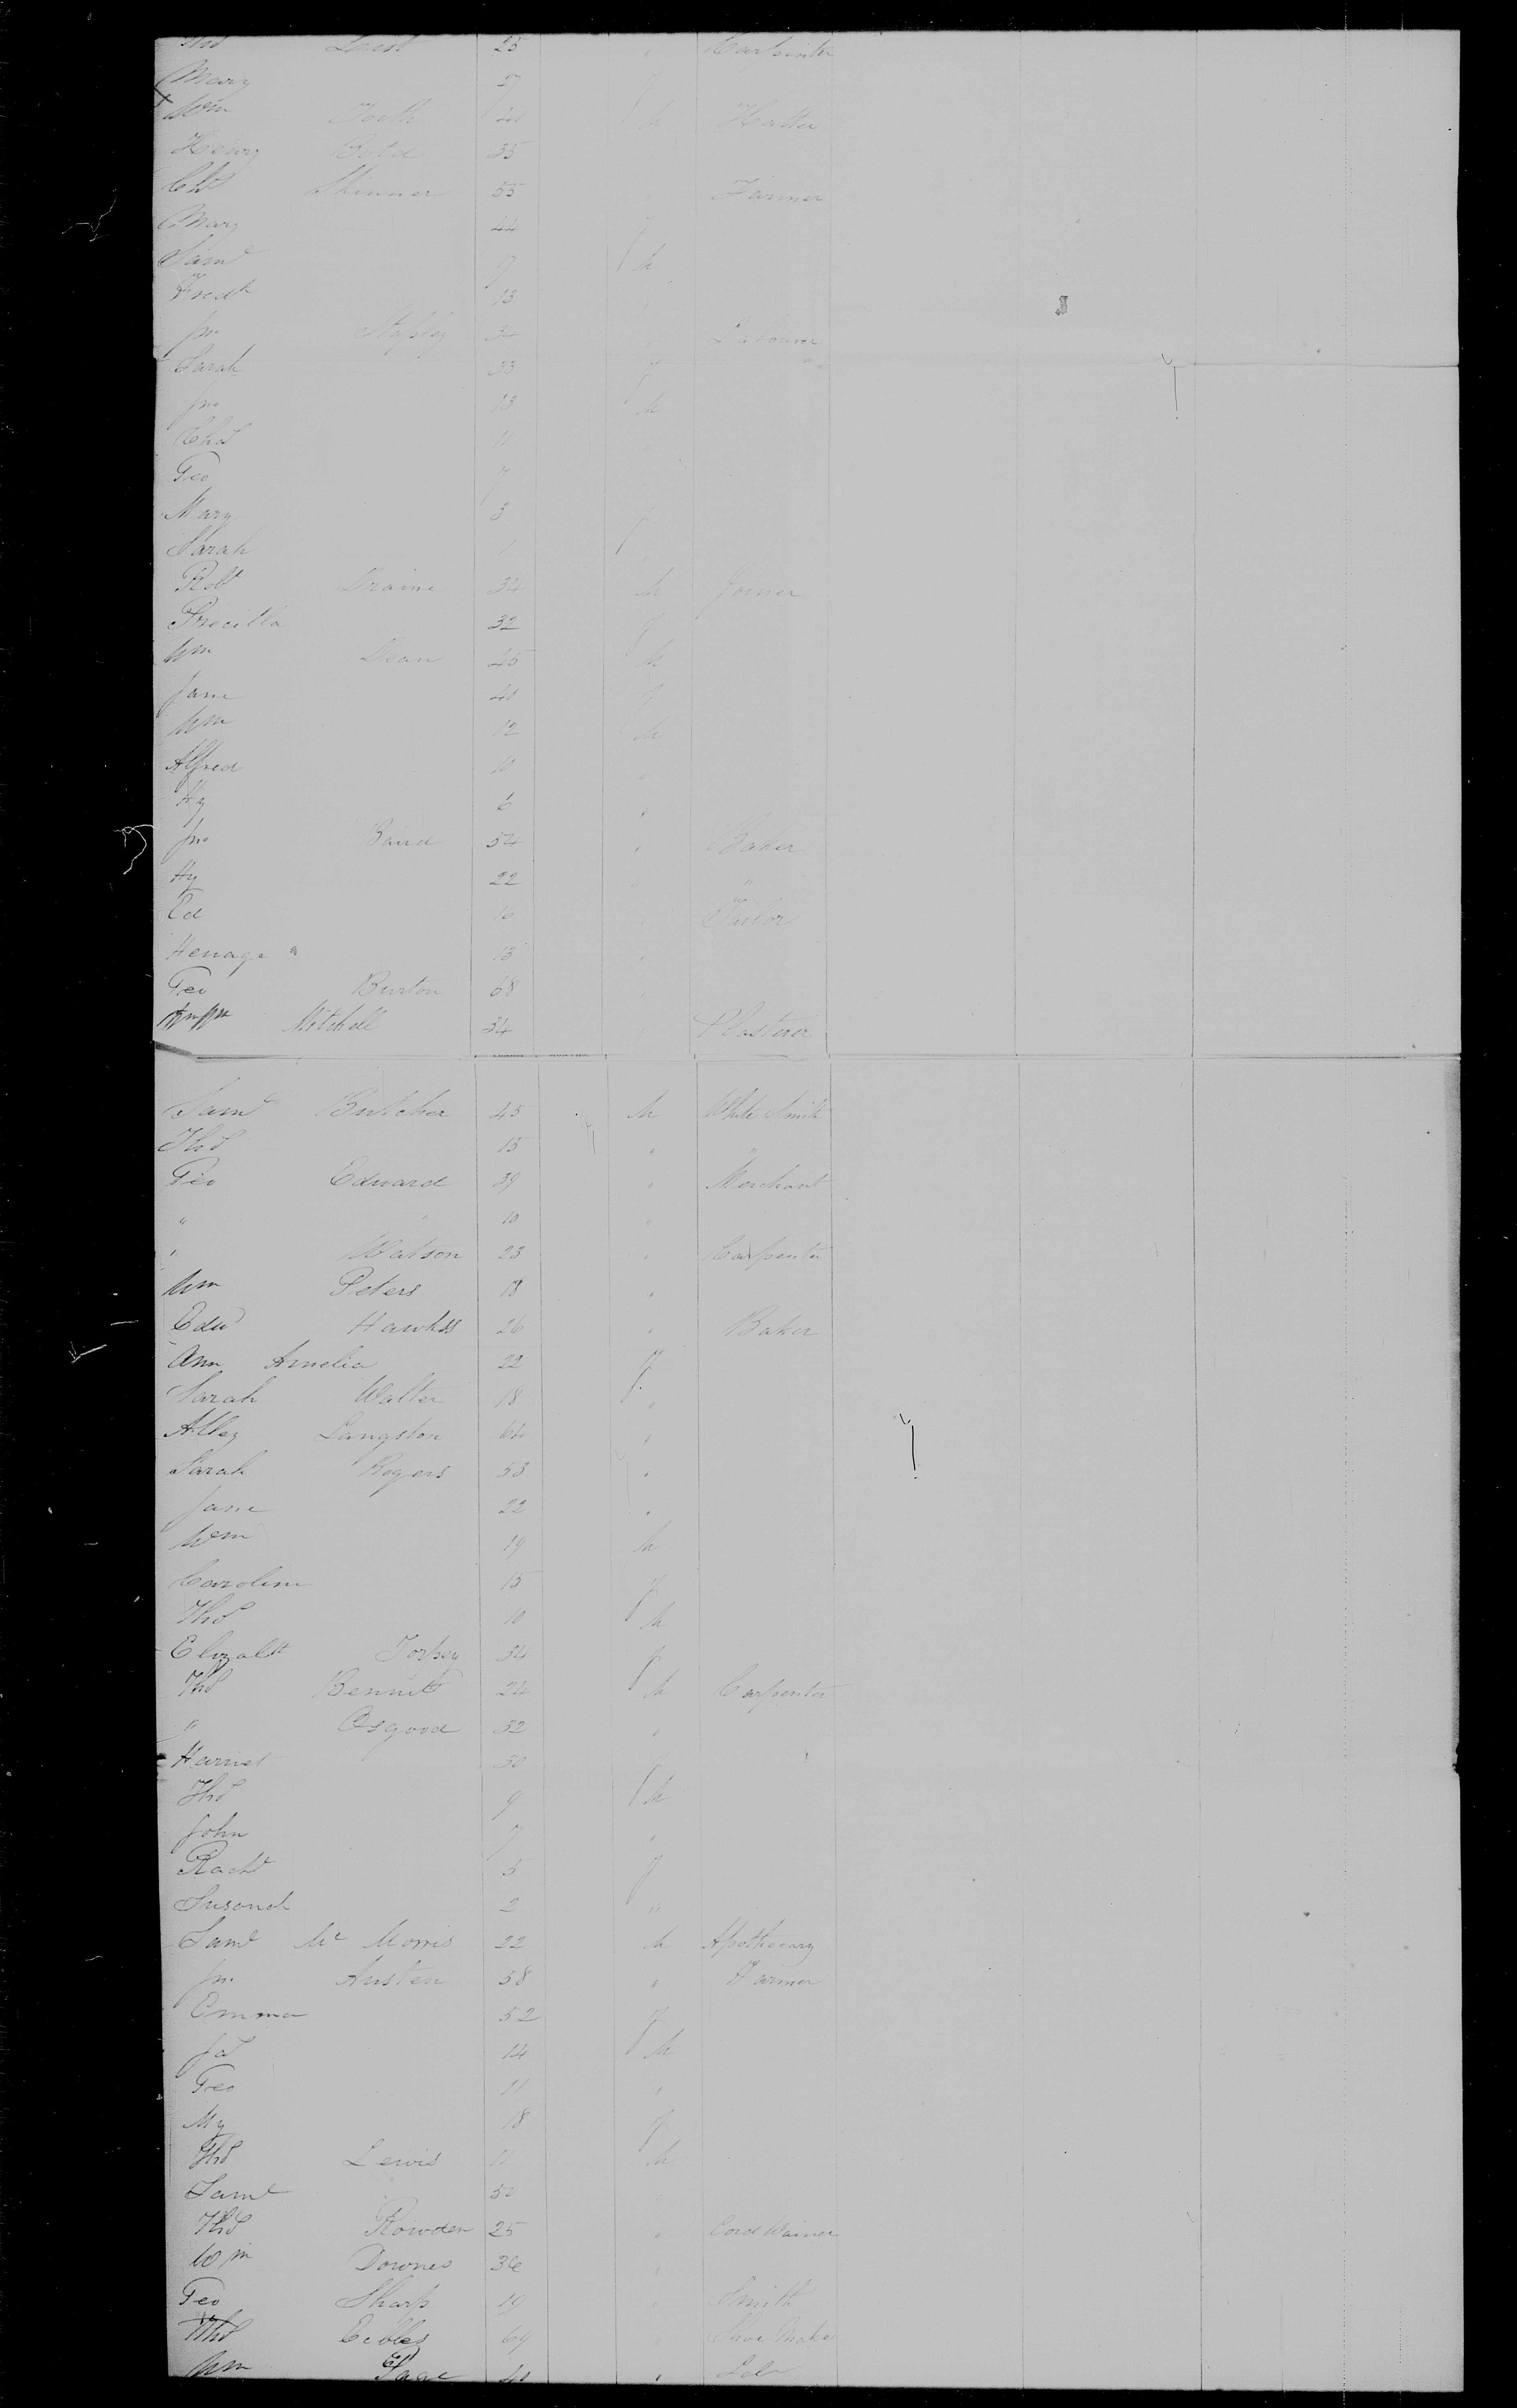 Thos 25 " Carpenter
Mary 27 f
Wm 40 M Hatter
Henry 35
Skinner 55 " Farmer
Mary 44 f
Saml 17 M
Fredk 13 "
Jno 32 " Labourer
Sarah 33 f
Jno 13 M
Chas 11
Geo 7
Mary 3 f
Sarah 1
Robt 34 M Joiner
Precilla 32 f
Wm Dean 45 M
Jane 40 f
Wm 12 M
Alfred 10 "
Hy 6 "
Jno 54 " Baker
Hy 22 " "
Ed 16 " Tailor
Henage " 13 "
Geo Burton 68 "
Mitchell 34 Plasterer
Saml Butcher 45 M White Smith
Thos 15 " "
Geo Edward 39 " Merchant
" " 10 "
" Watson 23 " Carpenter
Wm Peters 18 "
Edwd Hawkss 26 " Baker
Ann Amelia 22 f
Sarah Walter 18 "
Alley Langston 64 "
Sarah Rogers 53 "
Jane 22 "
Wm 19 M
Caroline 15 f
Thos 10 M
Elizabth 34 f
Thos Bennett 24 M Carpenter
" Osgood 32 "
Harriet 30 f
Thos 9 M
John 7 "
Rachl 5 f
Susanah 2 "
Saml Mc Morris 22 M Apothecary
Jno Austen 58 " Farmer
Emma 52 f
Js 14 M
Geo 11 "
My 18 f
Thos Lewis 11 M
Saml 50
Thos Rowden 25 " Cord Wainer
Wm Downes 36 "
Geo Sharp 19 " Smith
Thos 64 " Shoe Maker
Wm Page 40 " Labr